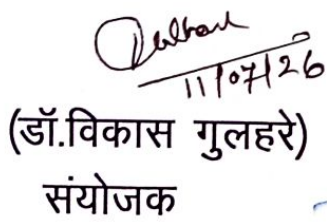 11/07/26
(डॉ.विकास गुलहरे)
संयोजक